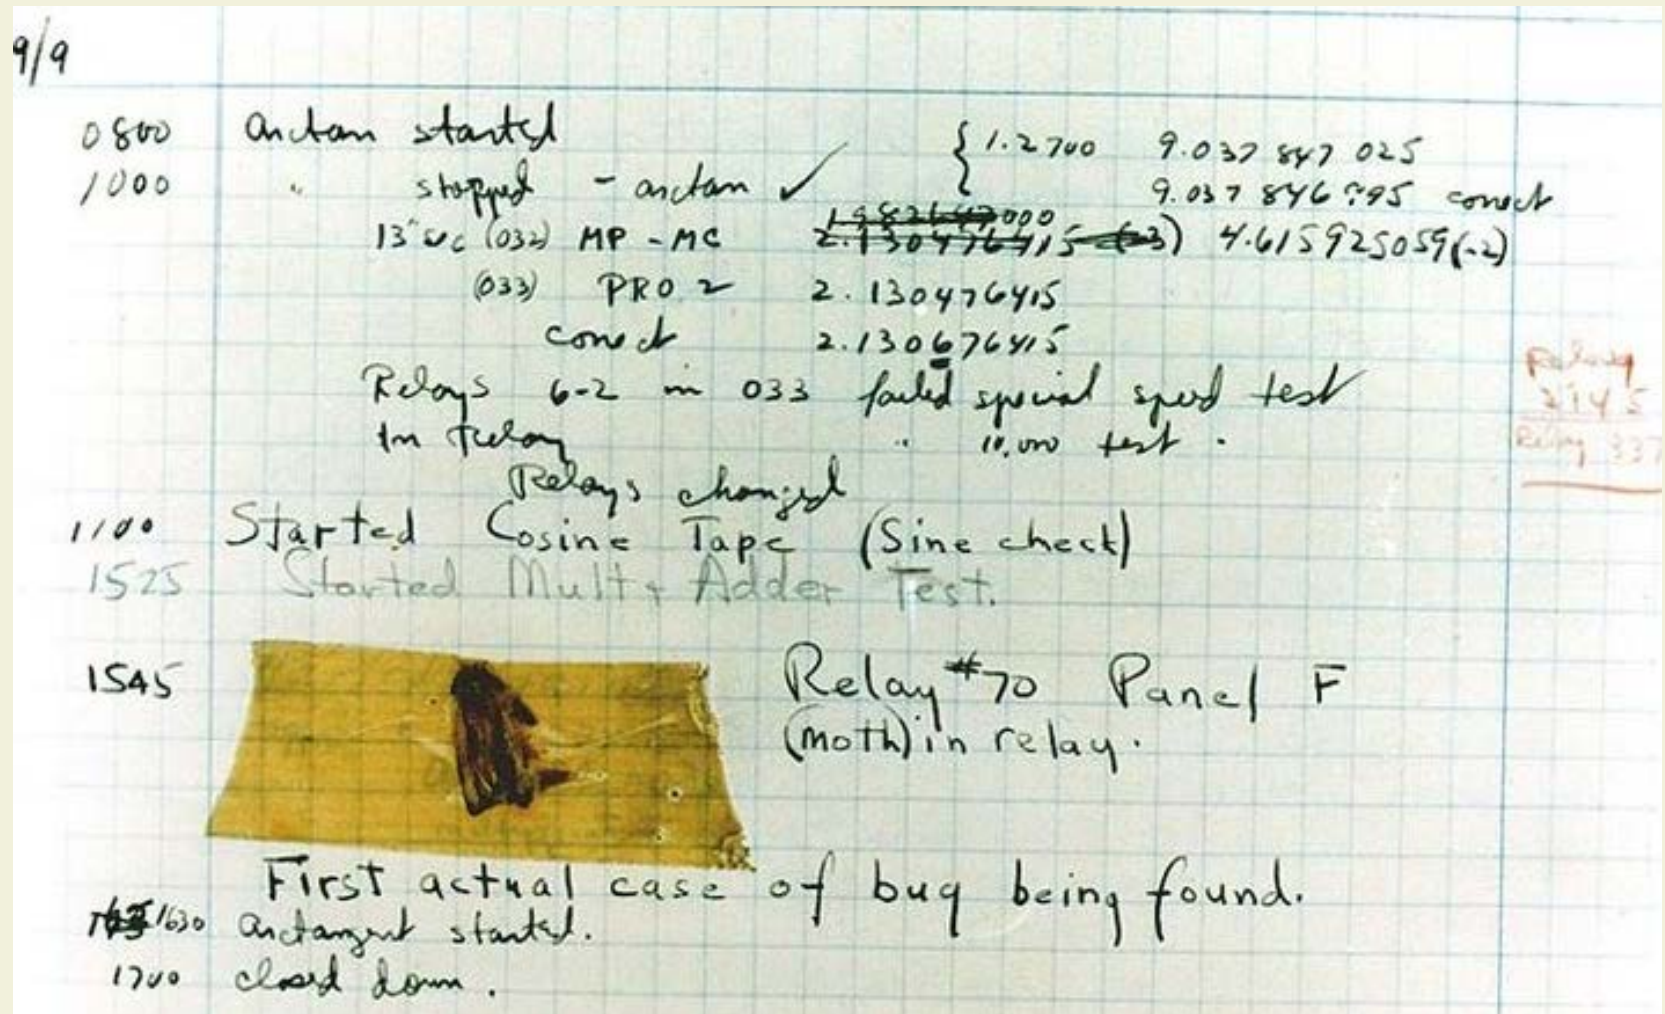 9/9
0800 Antan started { 1.2700 9.037 847 025
1000 " stopped - antan ✓ 9.037 846 795 conect
13" sec (032) MP - MC 2.130476415 (-3) 4.615925059(-2)
(033) PRO 2 2.130476415
conect 2.130676415
Relays 6-2 in 033 failed special speed test
In Relay " 10.000 test .
Relays changed
1100 Started Cosine Tape (Sine check)
1525 Started Mult + Adder Test.
1545 Relay #70 Panel F
(moth) in relay.
First actual case of bug being found.
1630 Antangent started.
1700 closed down .
Relay
2145
Relay 337